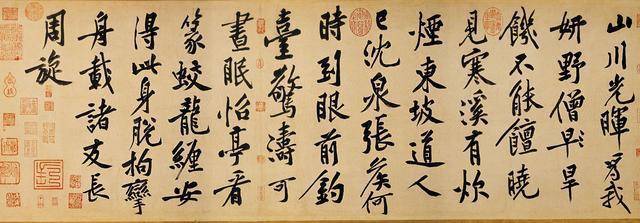 山川光暉為我
妍野僧早旱
饑不能饘曉
見寒溪有炊
煙東坡道人
已沈泉張侯何
時到眼前釣
臺驚濤可
晝眠怡亭看
篆蛟龍纏安
得此身脫拘攣
舟載諸友長
周旋